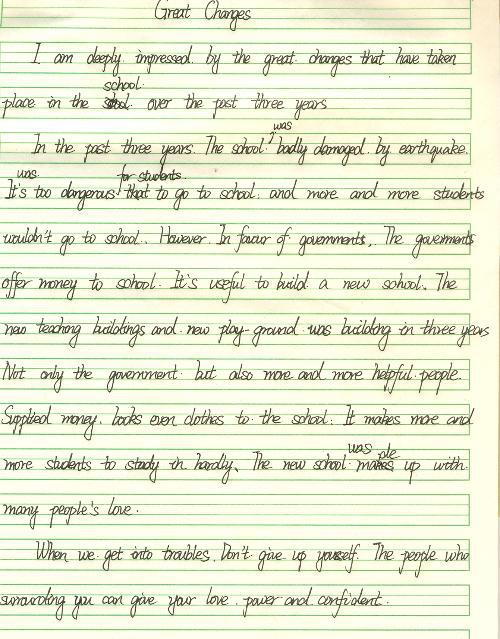 Great Changes
I am deeply impressed by the great changes that have taken
school
place in the over the past three years
was
In the past three years. The school badly damaged by earthquake.
was for students
It's too dangerous that to go to school. and more and more students
wouldn't go to school. However. In favour of governments, The goverments
offer money to school. It's useful to build a new school. The
new teaching buildings and new play-ground was building in three years
Not only the government but also more and more helpful people.
Supplied money. books even clothes to the school. It makes more and
was
more students to study in hardly. The new school makes up with
many people's love.
When we get into troubles. Don't give up youself. The people who
surrounding you can give your love. power and confident.